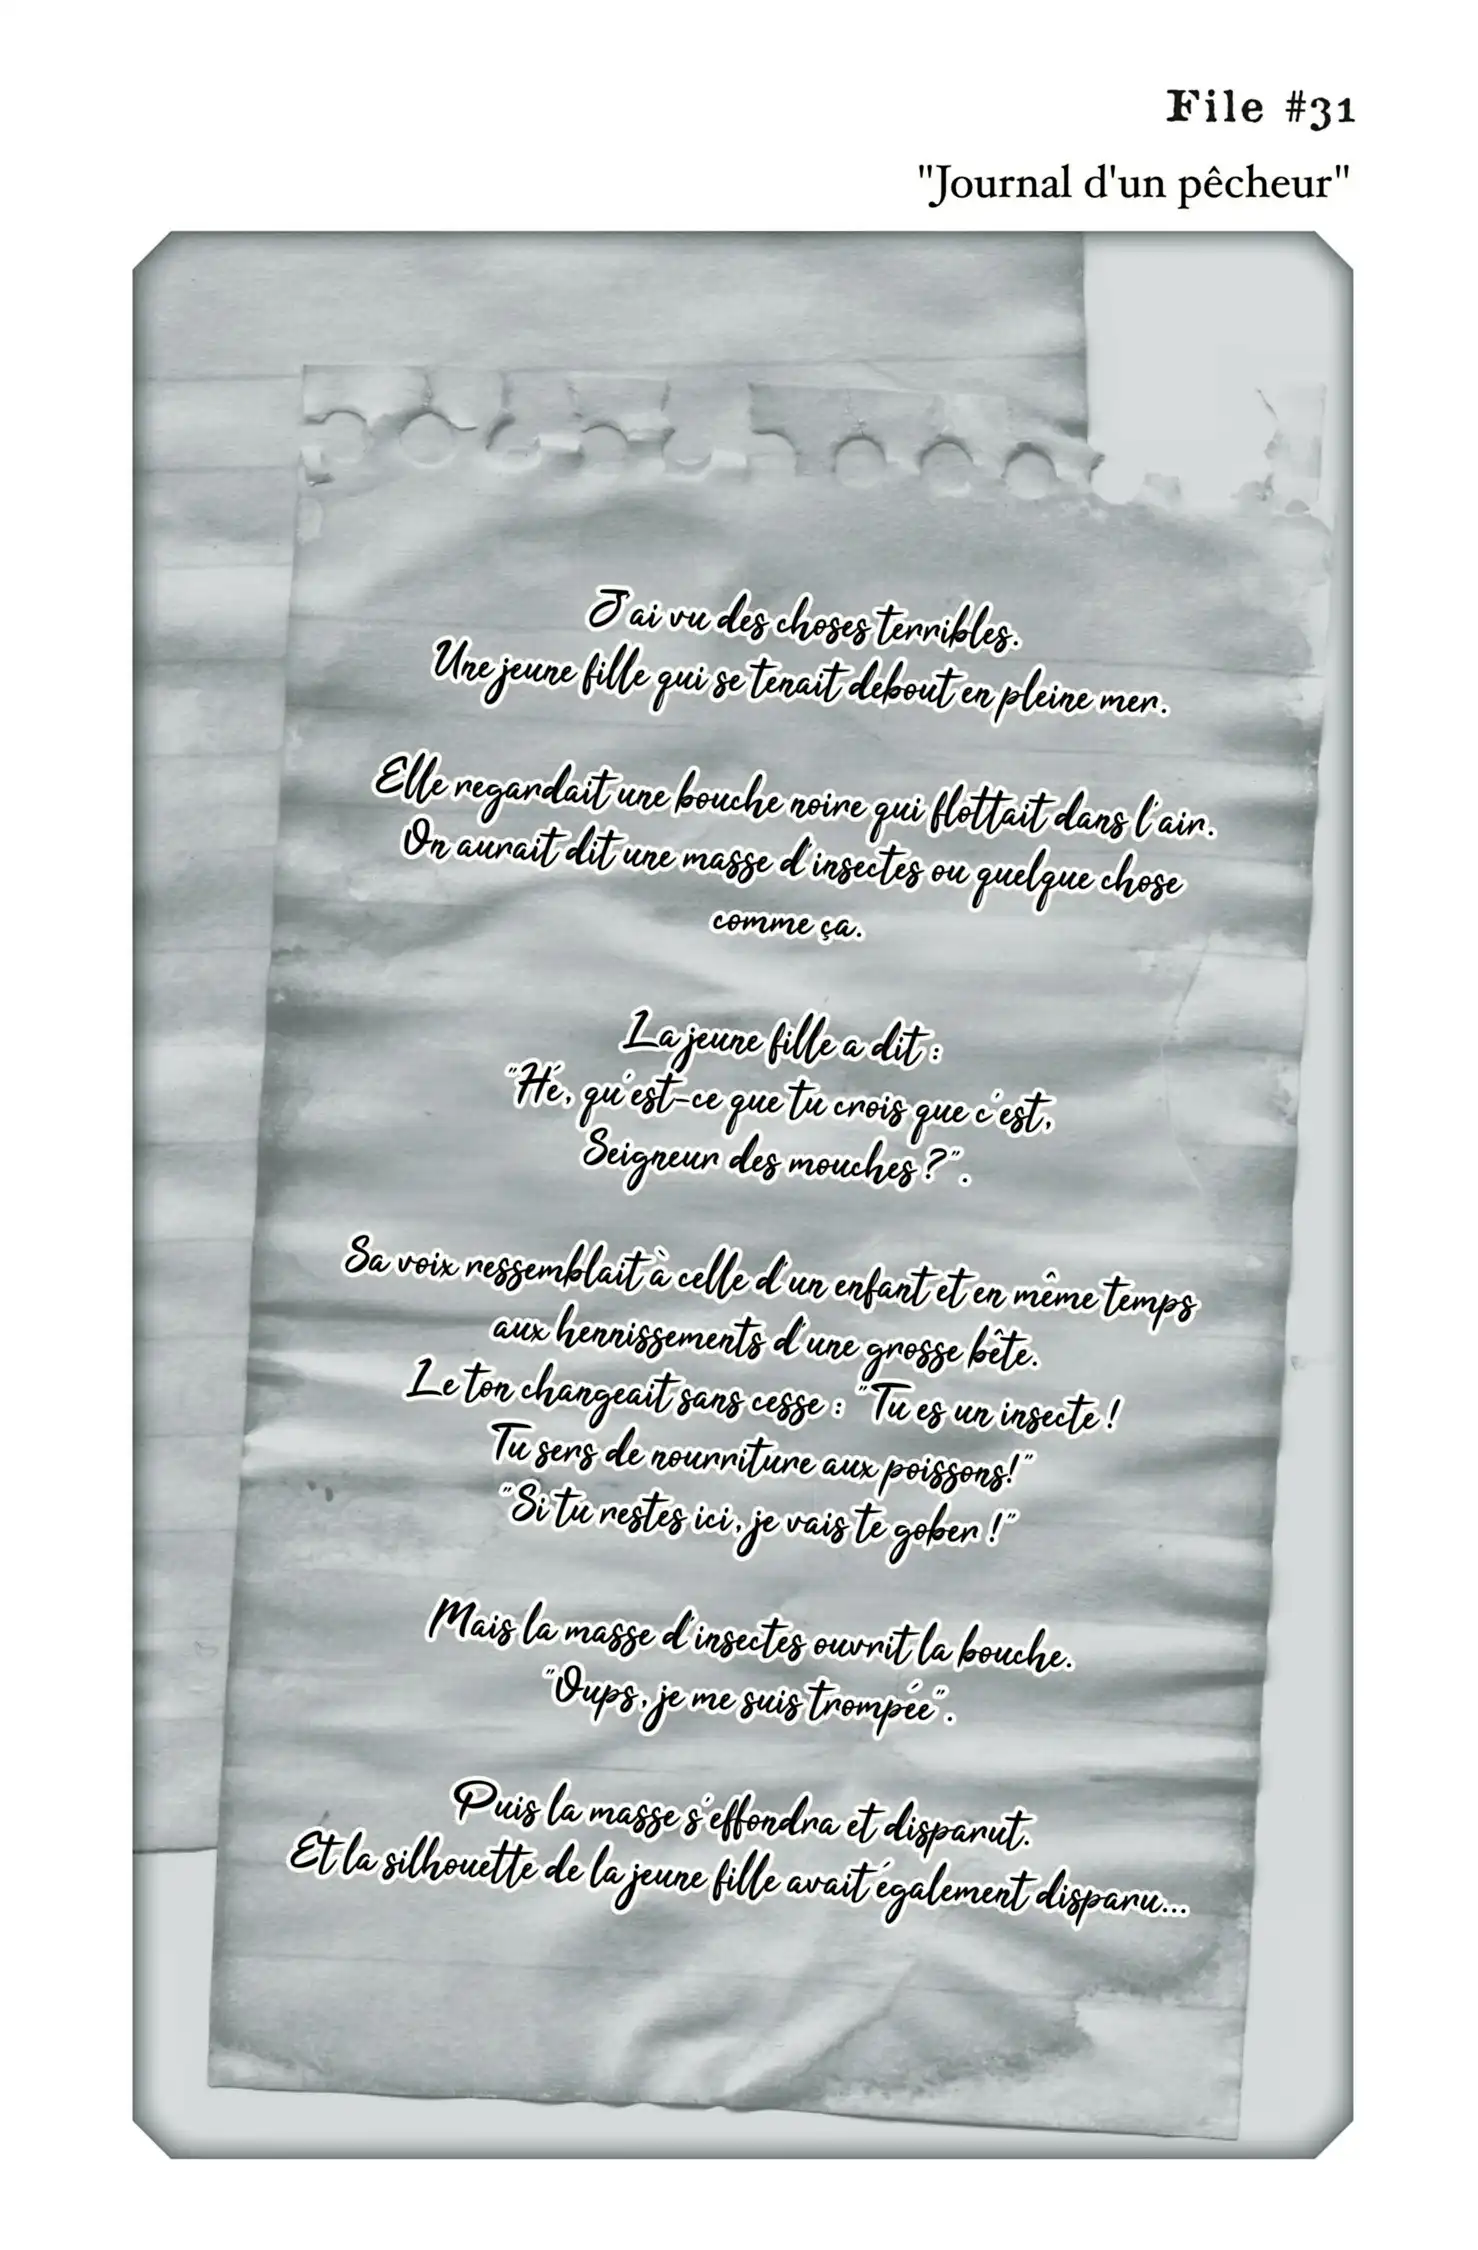 File #31
"Journal d'un pêcheur"
J'ai vu des choses terribles.
Une jeune fille qui se tenait debout en pleine mer.
Elle regardait une bouche noire qui flottait dans l'air.
On aurait dit une masse d'insectes ou quelque chose
comme ça.
La jeune fille a dit :
"Hé, qu'est-ce que tu crois que c'est,
Seigneur des mouches ?".
Sa voix ressemblait à celle d'un enfant et en même temps
aux hennissements d'une grosse bête.
Le ton changeait sans cesse : "Tu es un insecte !
Tu sers de nourriture aux poissons!"
"Si tu restes ici, je vais te gober !"
Mais la masse d'insectes ouvrit la bouche.
"Oups, je me suis trompée".
Puis la masse s'effondra et disparut.
Et la silhouette de la jeune fille avait également disparu...